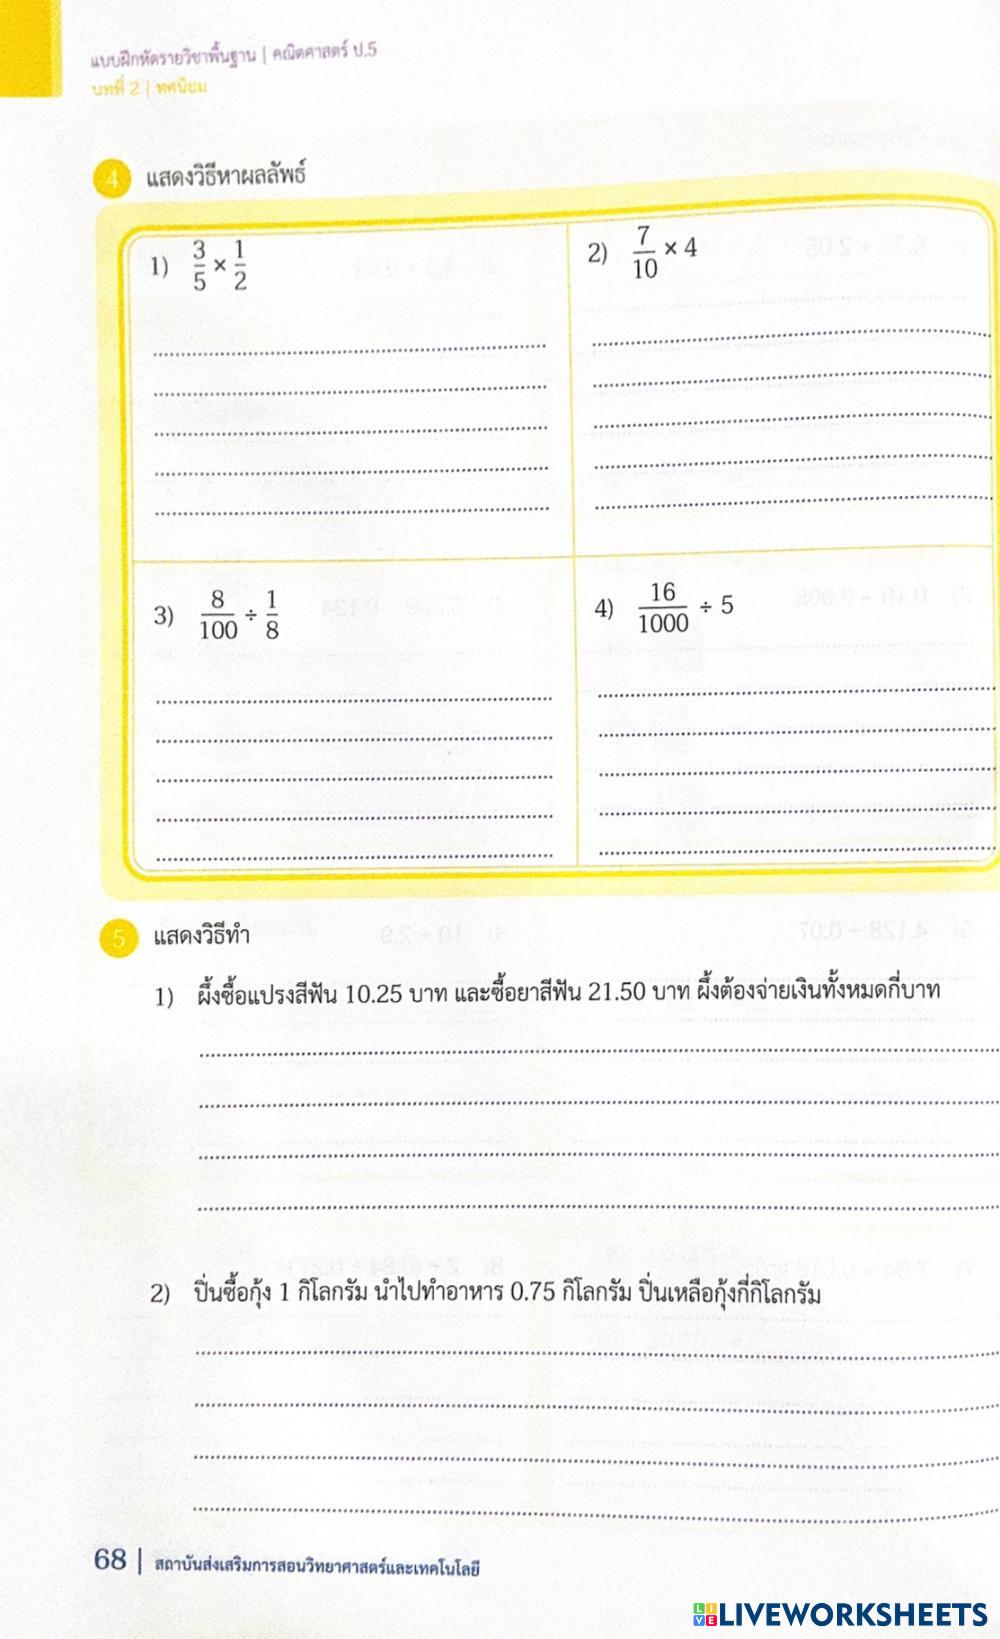 แบบฝึกหัดรายวิชาพื้นฐาน | คณิตศาสตร์ ป.5
บทที่ 2 | ทศนิยม
4 แสดงวิธีหาผลลัพธ์
1) 3/5 × 1/2
2) 7/10 × 4
3) 8/100 ÷ 1/8
4) 16/1000 ÷ 5
5 แสดงวิธีทำ
1) ผึ้งซื้อแปรงสีฟัน 10.25 บาท และซื้อยาสีฟัน 21.50 บาท ผึ้งต้องจ่ายเงินทั้งหมดกี่บาท
2) ปิ่นซื้อกุ้ง 1 กิโลกรัม นำไปทำอาหาร 0.75 กิโลกรัม ปิ่นเหลือกุ้งกี่กิโลกรัม
68 | สถาบันส่งเสริมการสอนวิทยาศาสตร์และเทคโนโลยี
LIVE LIVEWORKSHEETS